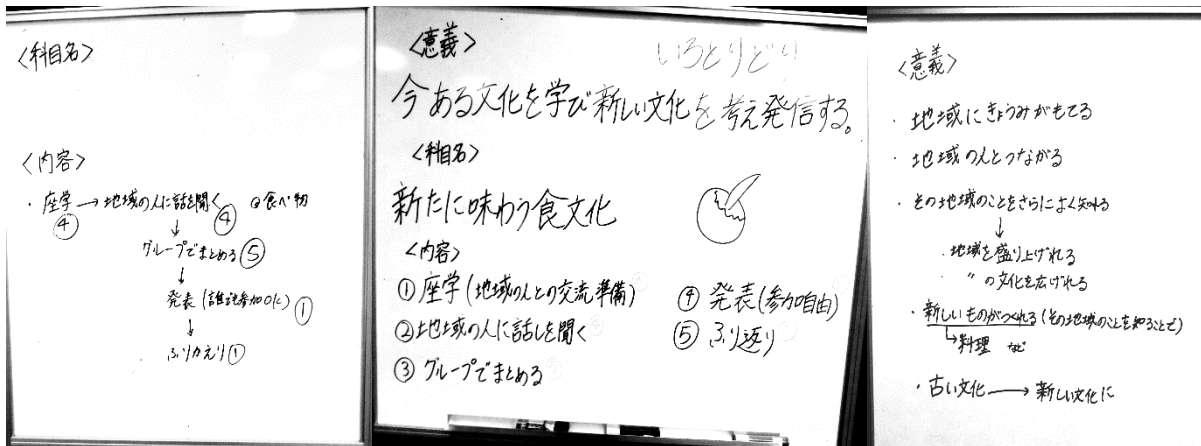 <科目名>
<内容>
・座学→地域の人に話を聞く @食べ物
④ ④
↓
グループでまとめる⑤
↓
発表(誰でも参加OK) ①
↓
ふりかえり①
いろとりどり
<意義>
今ある文化を学び新しい文化を考え発信する。
<科目名>
新たに味わう食文化
<内容>
①座学(地域の人との交流準備)
②地域の人に話しを聞く
③グループでまとめる
④発表(参加自由)
⑤ふり返り
<意義>
・地域にきょうみがもてる
・地域の人とつながる
・その地域のことをさらによく知れる
↓
・地域を盛り上げれる
・〃の文化を広げれる
・新しいものがつくれる(その地域のことを知ることで)
↳料理 など
・古い文化→新しい文化に